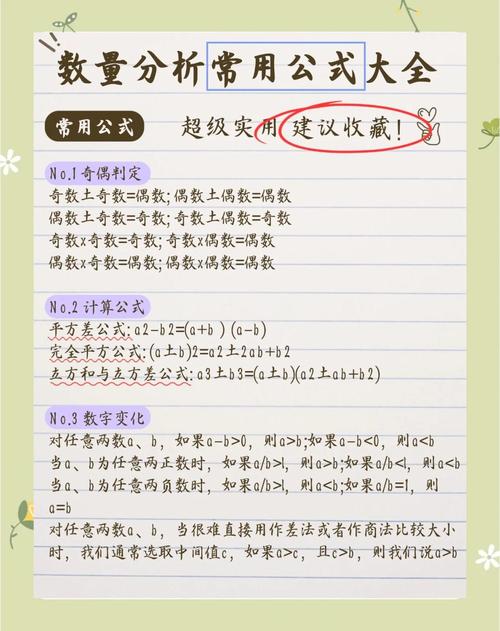 数量分析常用公式大全
常用公式
超级实用 建议收藏!
No.1奇偶判定
奇数土奇数=偶数;偶数土偶数=偶数
偶数土奇数=奇数;奇数土偶数=奇数
奇数x奇数=奇数;奇数x偶数=偶数
偶数x奇数=偶数;偶数x偶数=偶数
No.2计算公式
平方差公式:a2-b2=(a+b)(a-b)
完全平方公式:(a土b)2=a2土2ab+b2
立方和与立方差公式:a3土b3=(a土b)(a2土ab+b2)
No.3数字变化
对任意两数a、b,如果a-b>0,则a>b;如果a-b<0,则a<b
当a、b为任意两正数时,如果a/b>1,则a>b;如果a/b<1,则a<b
当a、b为任意两负数时,如果a/b>1,则a<b;如果a/b=1,则
a=b
对任意两数a、b,当很难直接用作差法或者作商法比较大小
时,我们通常选取中间值c,如果a>c,且c>b,则我们说a>b